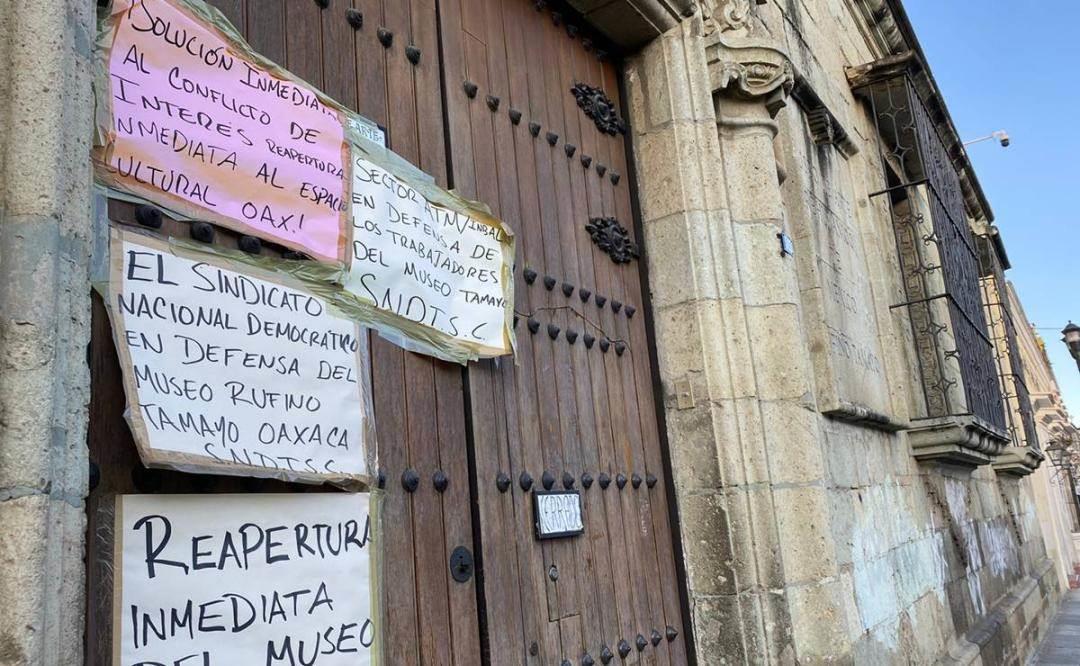 ¡SOLUCIÓN INMEDIATA
AL CONFLICTO DE
INTERÉS REAPERTURA
INMEDIATA AL ESPACIO
CULTURAL OAX!
SECTOR ATM/INBAL
EN DEFENSA DE
LOS TRABAJADORES
DEL MUSEO TAMAYO
S.N.D.T.S.C.
EL SINDICATO
NACIONAL DEMOCRÁTICO
EN DEFENSA DEL
MUSEO RUFINO
TAMAYO OAXACA
S.N.D.T.S.C.
REAPERTURA
INMEDIATA
DEL MUSEO
CERRADO